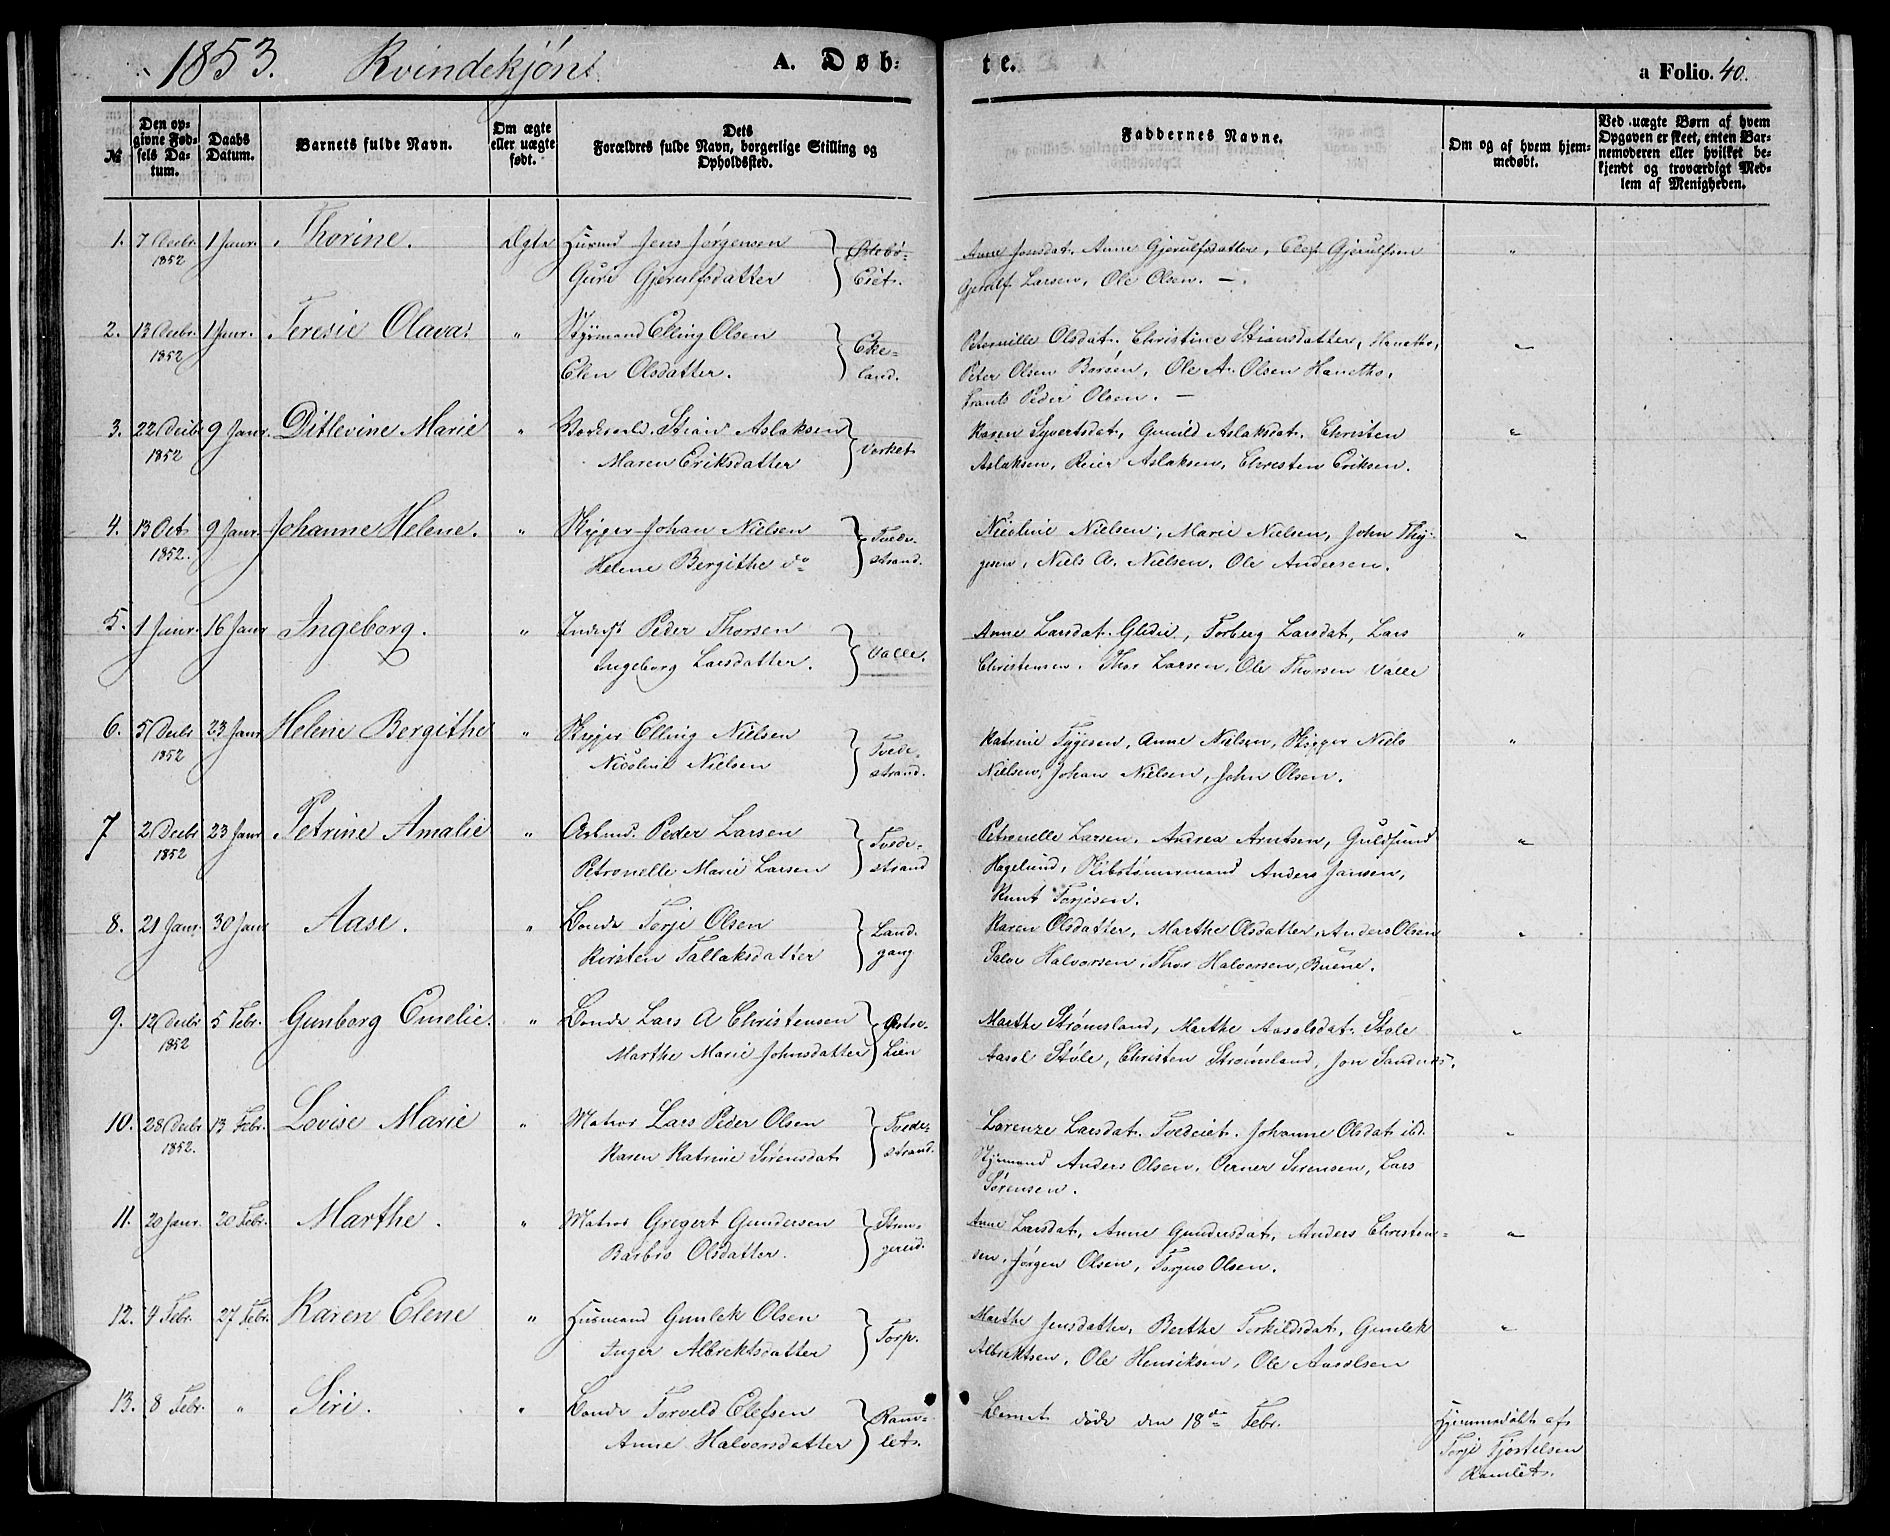 1853. Kvindekjøn.
A. Døb-
te.
a Folio. 40.
№
Den op-
givne Fød-
sels Da-
tum.
Daabs
Datum.
Barnets fulde Navn.
Om ægte
eller uægte
født.
Dets
Forældres fulde Navn, borgerlige Stilling og
Opholdssted.
Faddernes Navne.
Om og af hvem hjem-
medøbt.
Ved uægte Børn af hvem
Opgaven er skeet, enten Bar-
nemoderen eller hvilket be-
kjendt og troværdigt Med-
lem af Menigheden.
1. 7 Decbr 1 Janr. Thorine. Ægte Husmd Jens Jørgensen
1852 Guro Gjerulfsdatter Eiet.
Anne Jonsdat. Anne Gjerulfsdatter, Elef Gjerulfsen "
Gjerulf Larsen, Ole Olsen. —
2. 13 Decbr 1 Janr. Teresie Olava. " Styrmand Elling Olsen Eke-
1852 Elen Olsdatter. land.
Peternille Olsdat. Christine Stiansdatter, Hanetho, "
Peter Olsen Borsen, Ole A. Olsen Hanetho,
Frants Peder Olsen. —
3. 22 Decbr 9 Janr. Ditlevine Marie " Stian Aslaksen Værket
1852 Maren Eriksdatter
Karen Syvertsdat, Gunild Aslaksdat. Christen "
Aslaksen, Reier Aslaksen, Christen Eriksen.
4. 13 Oct 9 Janr. Johanne Helene. " Skipper Johan Nielsen Tvede-
1852. Helene Bergithe do strand.
Nicoline Nielsen, Marie Nielsen, John Thy- "
gesen, Niels A. Nielsen. Ole Andersen.
5. 1 Janr. 16 Janr Ingeborg. " Inderst Peder Thorsen Valle.
Ingeborg Larsdatter.
Anne Larsdat. Gledie, Torberg Larsdat, Lars "
Christensen. Thor Larsen, Ole Thorsen Valle
6. 5 Decbr 23 Janr Helene Bergithe " Skipper Elling Nielsen Tvede-
1852 Nicoline Nielsen strand.
Katrine Tygesen, Anne Nielsen, Skipper Niels "
Nielsen, Johan Nielsen, John Olsen.
7 2 Decbr 23 Janr Petrine Amalie " Arbmd. Peder Larsen Tvede-
1852 Petronelle Marie Larsen strand
Petronelle Larsen. Andrea Arntsen, Guldsmed "
Hagelund, Skibstømermand Anders Jansen,
Knut Torjesen.
8. 21 Janr. 30 Janr Aase. " Bonde Torje Olsen Land-
Kirsten Tallaksdatter gang
Karen Olsdatter, Marthe Olsdatter, Anders Olsen "
Salve Halvorsen, Thor Halvorsen, Buene.
9. 12 Decbr 5 Febr. Gunborg Emelie. " Bonde Lars A Christensen Østre-
1852 Marthe Marie Johnsdatter Lien
Marthe Strømsland, Marthe Aasolsdat. Støle "
Aasol Støle, Christen Strømsland, Jon Sandnes.
10. 28 Decbr 13 Febr. Lovise Marie " Matros Lars Peder Olsen Tvede-
1852. Karen Katrine Sørensdat strand.
Lorenze Larsdat. Tvedeiet. Johanne Olsdat ibd. "
Styrmand Anders Olsen. Oerner Sørensen, Lars
Sørensen.
11. 20 Janr. 20 Febr. Marthe. " Matros Gregert Gundersen Sten-
Barbro Olsdatter. gereid.
Anne Larsdat, Anne Gundersdat, Anders Christen- "
sen. Jørgen Olsen, Torjus Olsen.
12. 4 Febr. 27 Febr. Karen Elene " Husmand Gunlek Olsen Torp.
Inger Albrektsdatter
Marthe Jensdatter, Berthe Terkildsdat, Gunlek "
Albrektsen. Ole Henriksen, Ole Aasolsen
13. 8 Febr. " Siri. " Bonde Torveld Elefsen Ram-
Anne Halvorsdatter let.
Barnet døde den 18de Febr. Hjemmedøbt af
Terje Kjøstelsen
Ramlet.